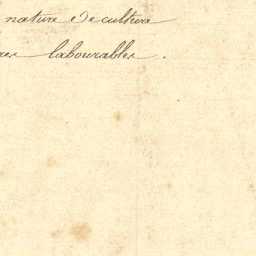 nature de culture
res labourables.